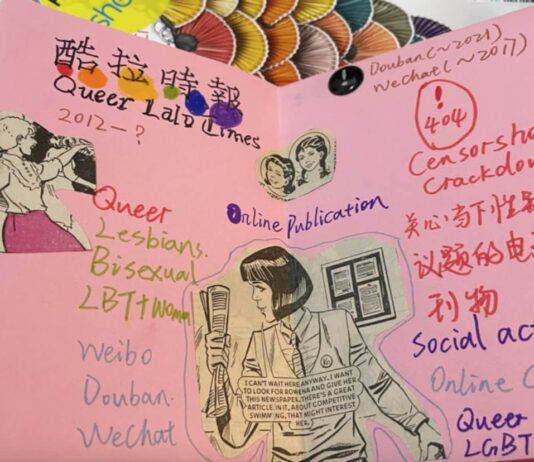 酷拉時報
Queer Lala Times
2012-?
Queer
Lesbians.
Bisexual
LBT+woman
Weibo
Douban.
WeChat
Online Publication
I CAN'T WAIT HERE ANYWAY. I WANT
TO LOOK FOR ROWENA AND GIVE HER
THIS NEWSPAPER. THERE'S A GREAT
ARTICLE IN IT, ABOUT COMPETITIVE
SWIMMING, THAT MIGHT INTEREST
HER.
Douban(~2021)
WeChat(~2017)
!
404
Censorsh
Crackdow
关心当下性别
议题的电
刊物
Social ac
Online C
Queer
LGBT